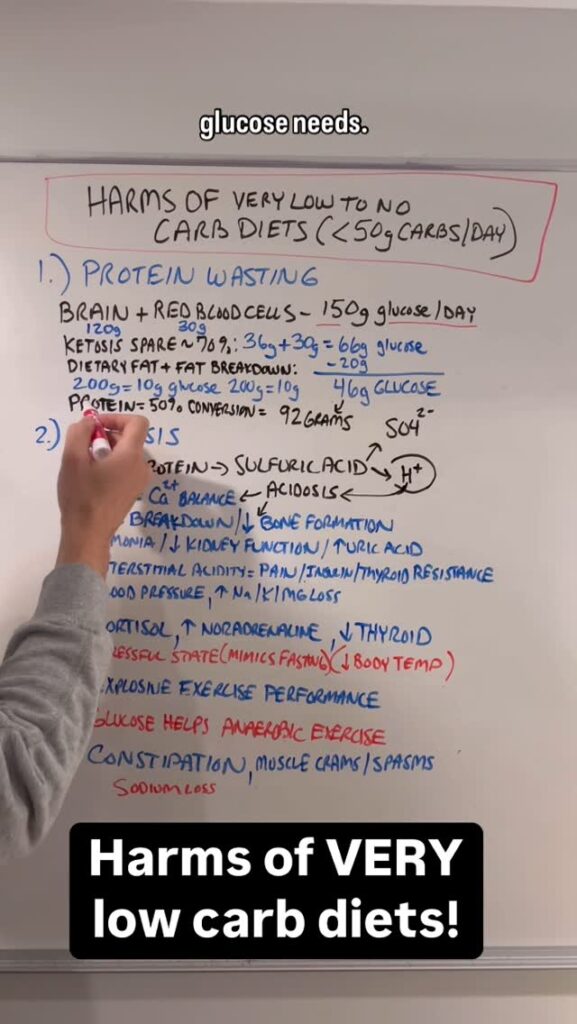 glucose needs.
HARMS OF VERY LOW TO NO
CARB DIETS (<50g CARBS/DAY)
1.) PROTEIN WASTING
BRAIN + RED BLOOD CELLS - 150g glucose/DAY
120g 30g
KETOSIS SPARE ~ 70%: 36g+30g = 66g glucose
DIETARY FAT + FAT BREAKDOWN: -20g
200g=10g glucose 200g=10g 46g GLUCOSE
PROTEIN = 50% CONVERSION = 92 GRAMS
SO4 2-
2.) SIS
OTEIN → SULFURIC ACID → H+
Ca2+ BALANCE ← ACIDOSIS ←
BREAKDOWN/↓ BONE FORMATION
MONIA/↓ KIDNEY FUNCTION/↑URIC ACID
TERSTITIAL ACIDITY = PAIN/INSULIN/THYROID RESISTANCE
OOD PRESSURE, ↑ Na/K/MG LOSS
ORTISOL, ↑ NORADRENALINE, ↓ THYROID
RESSFUL STATE (MIMICS FASTING) (↓ BODY TEMP)
EXPLOSIVE EXERCISE PERFORMANCE
GLUCOSE HELPS ANAEROBIC EXERCISE
CONSTIPATION, MUSCLE CRAMS/SPASMS
SODIUM LOSS
Harms of VERY
low carb diets!